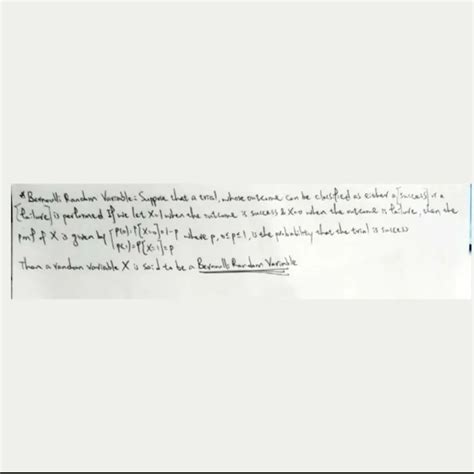 * Bernoulli Random Variable: Suppose that a trial, whose outcome can be classified as either a [success] or a
[failure] is performed If we let X=1 when the outcome is success & X=0 when the outcome is failure, then the
pmf of X is given by [P(0)=P[X=0]=1-p where p, 0≤p≤1, is the probability that the trial is success
P(1)=P[X=1]=p
Then a random variable X is said to be a Bernoulli Random Variable